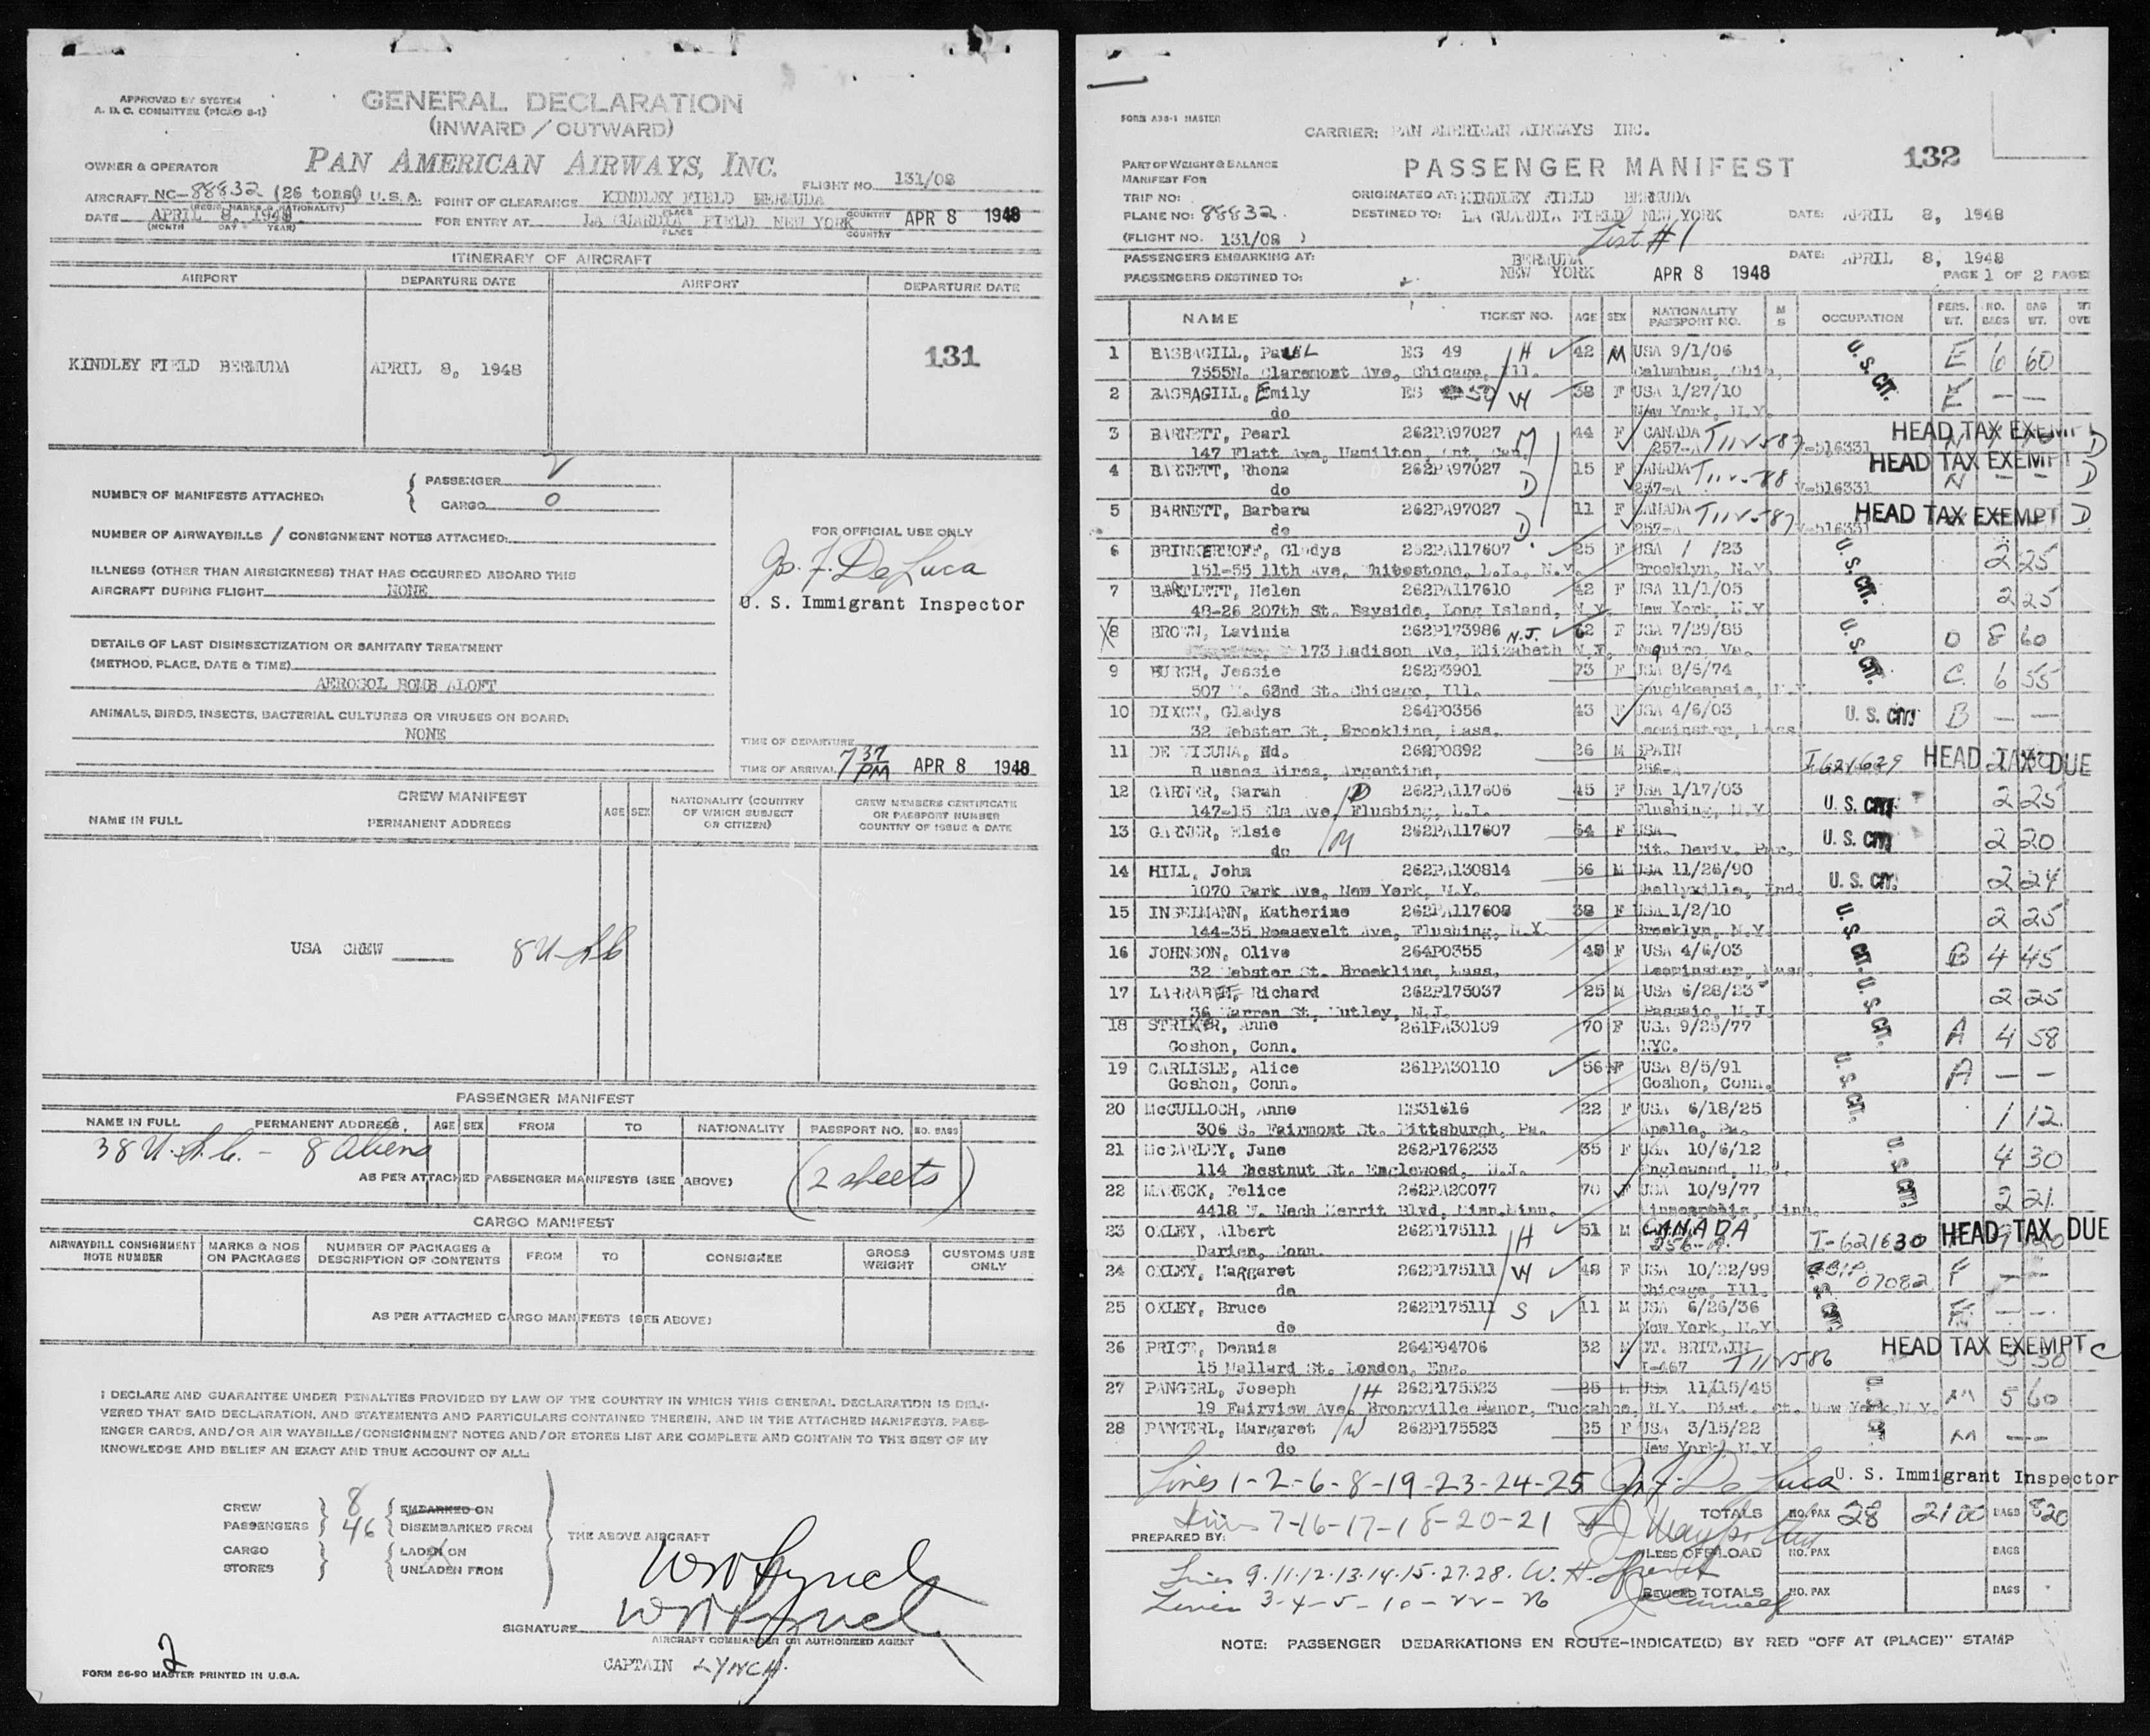 APPROVED BY SYSTEM
A. D. C. COMMITTEE (PICAO 8-1)
GENERAL DECLARATION
(INWARD / OUTWARD)
OWNER & OPERATOR
PAN AMERICAN AIRWAYS, INC.
FLIGHT NO. 131/08
AIRCRAFT NC-88832 (26 tons) U.S.A. POINT OF CLEARANCE KINDLEY FIELD BERMUDA
(REGIS. MARKS & NATIONALITY) PLACE COUNTRY
DATE APRIL 8, 1948 FOR ENTRY AT LA GUARDIA FIELD NEW YORK APR 8 1948
(MONTH DAY YEAR) PLACE COUNTRY
ITINERARY OF AIRCRAFT
AIRPORT DEPARTURE DATE AIRPORT DEPARTURE DATE
KINDLEY FIELD BERMUDA APRIL 8, 1948 131
NUMBER OF MANIFESTS ATTACHED: PASSENGER 2
CARGO 0
NUMBER OF AIRWAYBILLS / CONSIGNMENT NOTES ATTACHED:
ILLNESS (OTHER THAN AIRSICKNESS) THAT HAS OCCURRED ABOARD THIS
AIRCRAFT DURING FLIGHT NONE
DETAILS OF LAST DISINSECTIZATION OR SANITARY TREATMENT
(METHOD, PLACE, DATE & TIME)
AEROSOL BOMB ALOFT
ANIMALS, BIRDS, INSECTS, BACTERIAL CULTURES OR VIRUSES ON BOARD:
NONE
FOR OFFICIAL USE ONLY
Jos. F. De Luca
U. S. Immigrant Inspector
TIME OF DEPARTURE
TIME OF ARRIVAL 7 37 PM APR 8 1948
CREW MANIFEST
NAME IN FULL PERMANENT ADDRESS AGE SEX NATIONALITY (COUNTRY OF WHICH SUBJECT OR CITIZEN) CREW MEMBERS CERTIFICATE OR PASSPORT NUMBER COUNTRY OF ISSUE & DATE
USA CREW 8 U.S.C.
PASSENGER MANIFEST
NAME IN FULL PERMANENT ADDRESS AGE SEX FROM TO NATIONALITY PASSPORT NO. NO. BAGS
38 U.S.C. - 8 Aliens
AS PER ATTACHED PASSENGER MANIFESTS (SEE ABOVE) (2 sheets)
CARGO MANIFEST
AIRWAYBILL CONSIGNMENT NOTE NUMBER MARKS & NOS ON PACKAGES NUMBER OF PACKAGES & DESCRIPTION OF CONTENTS FROM TO CONSIGNEE GROSS WEIGHT CUSTOMS USE ONLY
AS PER ATTACHED CARGO MANIFESTS (SEE ABOVE)
I DECLARE AND GUARANTEE UNDER PENALTIES PROVIDED BY LAW OF THE COUNTRY IN WHICH THIS GENERAL DECLARATION IS DELI-
VERED THAT SAID DECLARATION, AND STATEMENTS AND PARTICULARS CONTAINED THEREIN, AND IN THE ATTACHED MANIFESTS, PASS-
ENGER CARDS, AND/OR AIR WAYBILLS/CONSIGNMENT NOTES AND/OR STORES LIST ARE COMPLETE AND CONTAIN TO THE BEST OF MY
KNOWLEDGE AND BELIEF AN EXACT AND TRUE ACCOUNT OF ALL:
CREW 8 EMBARKED ON
PASSENGERS 46 DISEMBARKED FROM THE ABOVE AIRCRAFT
CARGO LADEN ON
STORES UNLADEN FROM
W W Lynch
SIGNATURE W W Lynch
AIRCRAFT COMMANDER OR AUTHORIZED AGENT
CAPTAIN LYNCH.
2
FORM 86-90 MASTER PRINTED IN U.S.A.
FORM A38-1 MASTER
CARRIER: PAN AMERICAN AIRWAYS INC.
PART OF WEIGHT & BALANCE
MANIFEST FOR
PASSENGER MANIFEST 132
TRIP NO: ORIGINATED AT: KINDLEY FIELD BERMUDA
PLANE NO: 88832 DESTINED TO: LA GUARDIA FIELD NEW YORK DATE: APRIL 8, 1948
(FLIGHT NO. 131/08 ) List #1
PASSENGERS EMBARKING AT: BERMUDA DATE: APRIL 8, 1948
PASSENGERS DESTINED TO: NEW YORK APR 8 1948 PAGE 1 OF 2 PAGES
NAME TICKET NO. AGE SEX NATIONALITY PASSPORT NO. M S OCCUPATION PERS. WT. NO. BAGS BAG WT. WT OVE
1 BASBAGILL, Paul ES 49 H 42 M USA 9/1/06 U.S. CIT. E 6 60
7555N. Claremont Ave, Chicago, Ill. Columbus, Ohio,
2 BASBAGILL, Emily ES 50 W 38 F USA 1/27/10 E — —
do New York, N.Y.
3 BARNETT, Pearl 262PA97027 M 44 F CANADA HEAD TAX EXEMPT D
147 Flatt Ave, Hamilton, Ont, Can. 257-A V-516331
4 BARNETT, Rhona 262PA97027 D 15 F CANADA HEAD TAX EXEMPT D
do 257-A V-516331 N — —
5 BARNETT, Barbara 262PA97027 D 11 F CANADA HEAD TAX EXEMPT D
do 257-A V-516331
6 BRINKERHOFF, Gladys 262PA117607 25 F USA / /23 U.S. CIT. 2 25
151-55 11th Ave, Whitestone, L.I., N.Y. Brooklyn, N.Y
7 BARTLETT, Helen 262PA117610 42 F USA 11/1/05 2 25
48-26 207th St. Bayside, Long Island, N.Y. New York, N.Y
8 BROWN, Lavinia 262P173986 N.J. 62 F USA 7/29/85 U.S. CIT. D 8 60
173 Madison Ave, Elizabeth Esquire, Va.
9 BURCH, Jessie 262P3901 73 F USA 8/5/74 C 6 55
507 W. 62nd St. Chicago, Ill. Poughkeepsie, N.Y.
10 DIXON, Gladys 264P0356 43 F USA 4/6/03 U. S. CIT. B — —
32 Webster St, Brookline, Mass. Leominster, Mass
11 DE VICUNA, Ed. 262P0892 26 M SPAIN I621629 HEAD TAX DUE
Buenos Aires, Argentina, 256-A
12 GARNER, Sarah D 262PA117606 45 F USA 1/17/03 U. S. CIT. 2 25
147-15 Elm Ave, Flushing, L.I. Flushing, N.Y
13 GARNER, Elsie M 262PA117607 64 F USA U. S. CIT. 2 20
do Cit. Deriv. Par.
14 HILL, John 262PA130814 56 M USA 11/26/90 U. S. CIT. 2 24
1070 Park Ave, New York, N.Y. Shellyville, Ind.
15 INSELMANN, Katherine 262PA117608 38 F USA 1/2/10 U.S. CIT. 2 25
144-35 Roosevelt Ave, Flushing, N.Y. Brooklyn, N.Y
16 JOHNSON, Olive 264P0355 45 F USA 4/6/03 B 4 45
32 Webster St. Brookline, Mass. Leominster, Mass.
17 LARRABEE, Richard 262P175037 25 M USA 6/28/23 U.S. CIT. 2 25
36 Warren St, Nutley, N.J. Passaic, N.J
18 STRIKER, Anne 261PA30109 70 F USA 9/25/77 A 4 58
Goshon, Conn. NYC.
19 CARLISLE, Alice 261PA30110 56 F USA 8/5/91 U.S. CIT. A — —
Goshon, Conn. Goshon, Conn.
20 McCULLOCH, Anne ES31616 22 F USA 6/18/25 1 12
306 S. Fairmont St. Pittsburgh, Pa. Apollo, Pa.
21 McCARLEY, June 262P176233 35 F USA 10/6/12 U.S. CIT. 4 30
114 Chestnut St. Englewood, N.J. Englewood, N.J.
22 MARECK, Felice 262PA20077 70 F USA 10/9/77 2 21
4418 W. Nach Merrit Blvd, Minn.Minn. Minneapolis, Minn.
23 OXLEY, Albert 262P175111 H 51 M CANADA I-621630 HEAD TAX DUE
Darien, Conn. 256-A
24 OXLEY, Margaret 262P175111 W 48 F USA 10/22/99 07082 F — —
do Chicago, Ill.
25 OXLEY, Bruce 262P175111 S 11 M USA 6/26/36 U.S. CIT. F — —
do New York, N.Y
26 PRICE, Dennis 264P94706 32 M GT. BRITAIN HEAD TAX EXEMPT C
15 Mallard St. London, Eng. I-467 T112586
27 PANGERL, Joseph H 262P175523 25 M USA 11/15/45 U.S. CIT. AA 5 60
19 Fairview Ave, Bronxville Manor, Tuckahoe, N.Y. Dist. Ct. New York, N.Y.
28 PANGERL, Margaret W 262P175523 25 F USA 3/15/22 AA — —
do New York, N.Y
Lines 1-2-6-8-19-23-24-25 Jos. F. De Luca U. S. Immigrant Inspector
Lines 7-16-17-18-20-21 TOTALS NO. PAX 28 2100 BAGS 820
PREPARED BY:
LESS OFFLOAD NO. PAX BAGS
Lines 9.11.12.13.14.15.27.28. W. H.
Lines 3-4-5-10-22-26 REVISED TOTALS NO. PAX BAGS
NOTE: PASSENGER DEBARKATIONS EN ROUTE-INDICATE(D) BY RED "OFF AT (PLACE)" STAMP